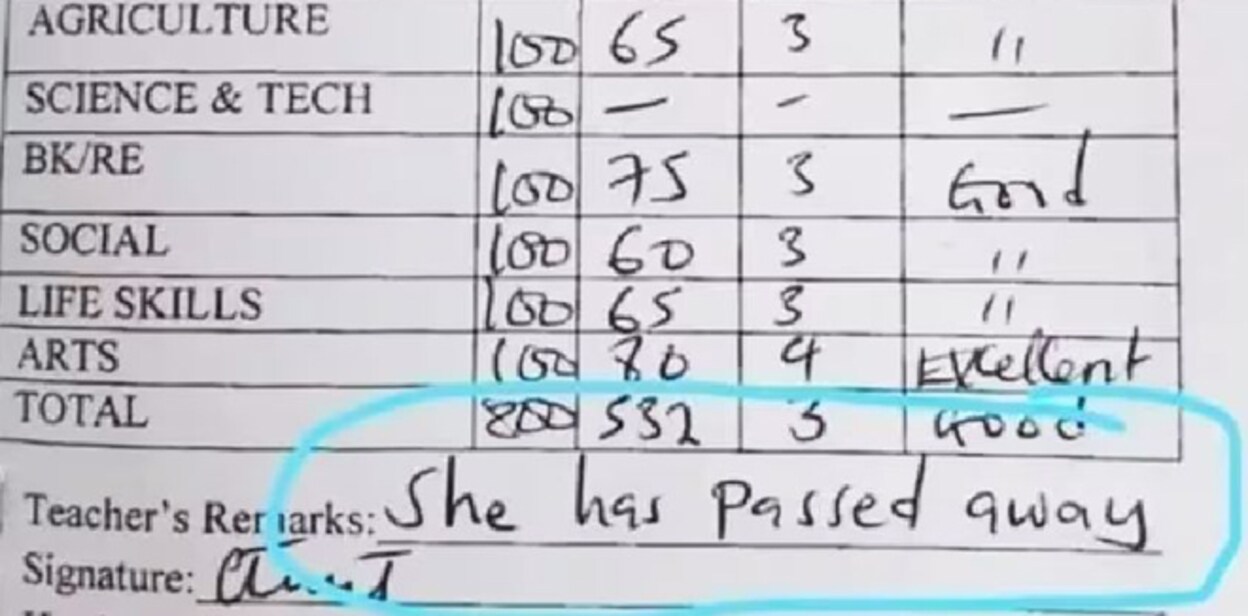 AGRICULTURE 100 65 3 "
SCIENCE & TECH 100 — - —
BK/RE 100 75 3 Good
SOCIAL 100 60 3 "
LIFE SKILLS 100 65 3 "
ARTS 100 70 4 Excellent
TOTAL 800 532 3 Good
Teacher's Remarks: She has passed away
Signature: